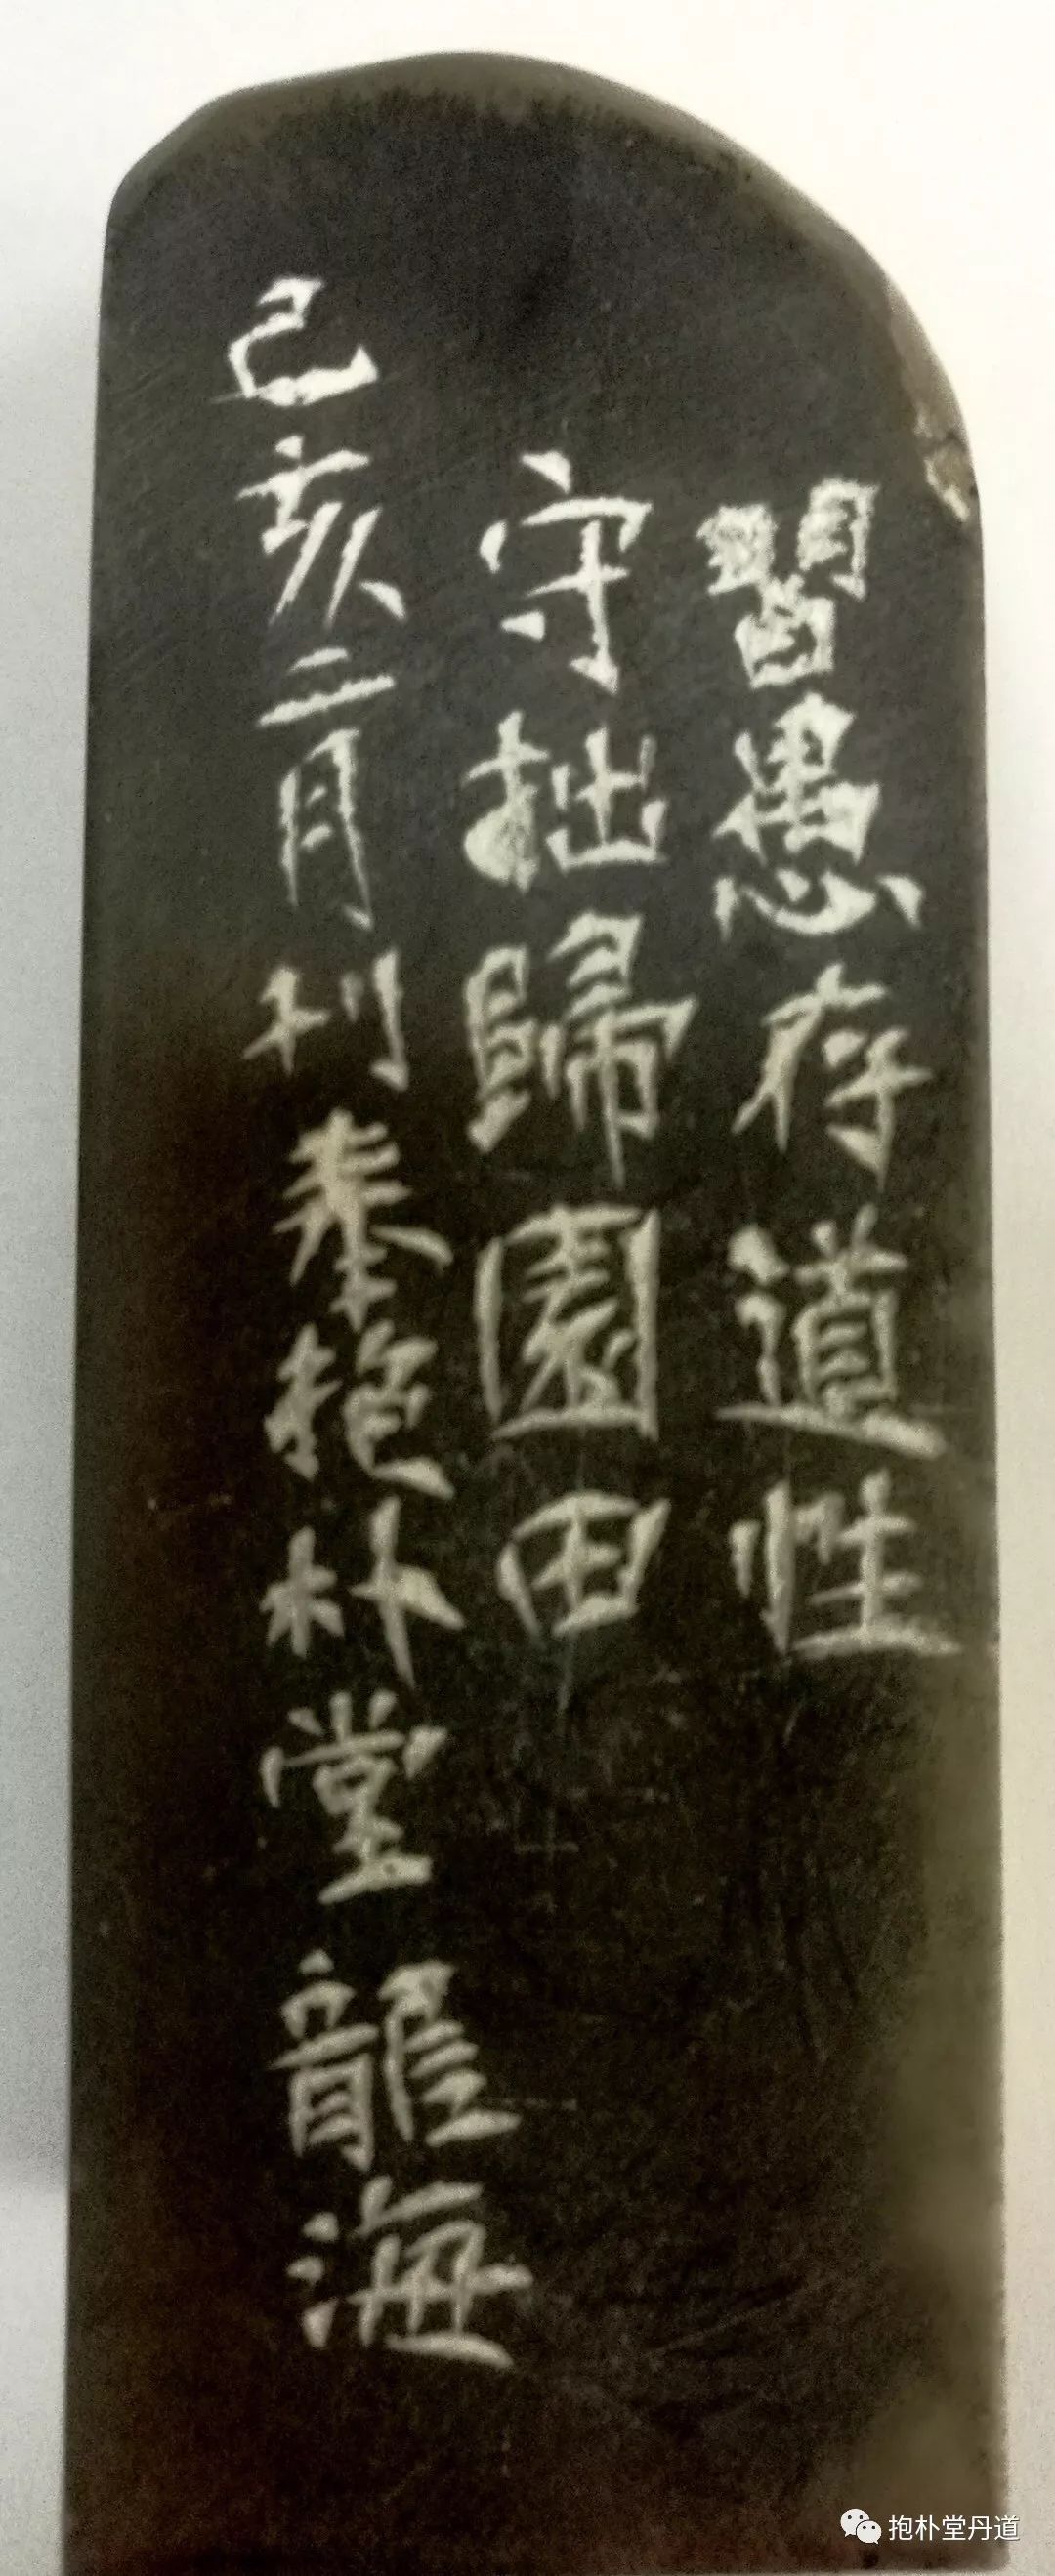 愚存道性
守拙歸園田
己亥二月刊奉抱朴堂龍海
抱朴堂丹道